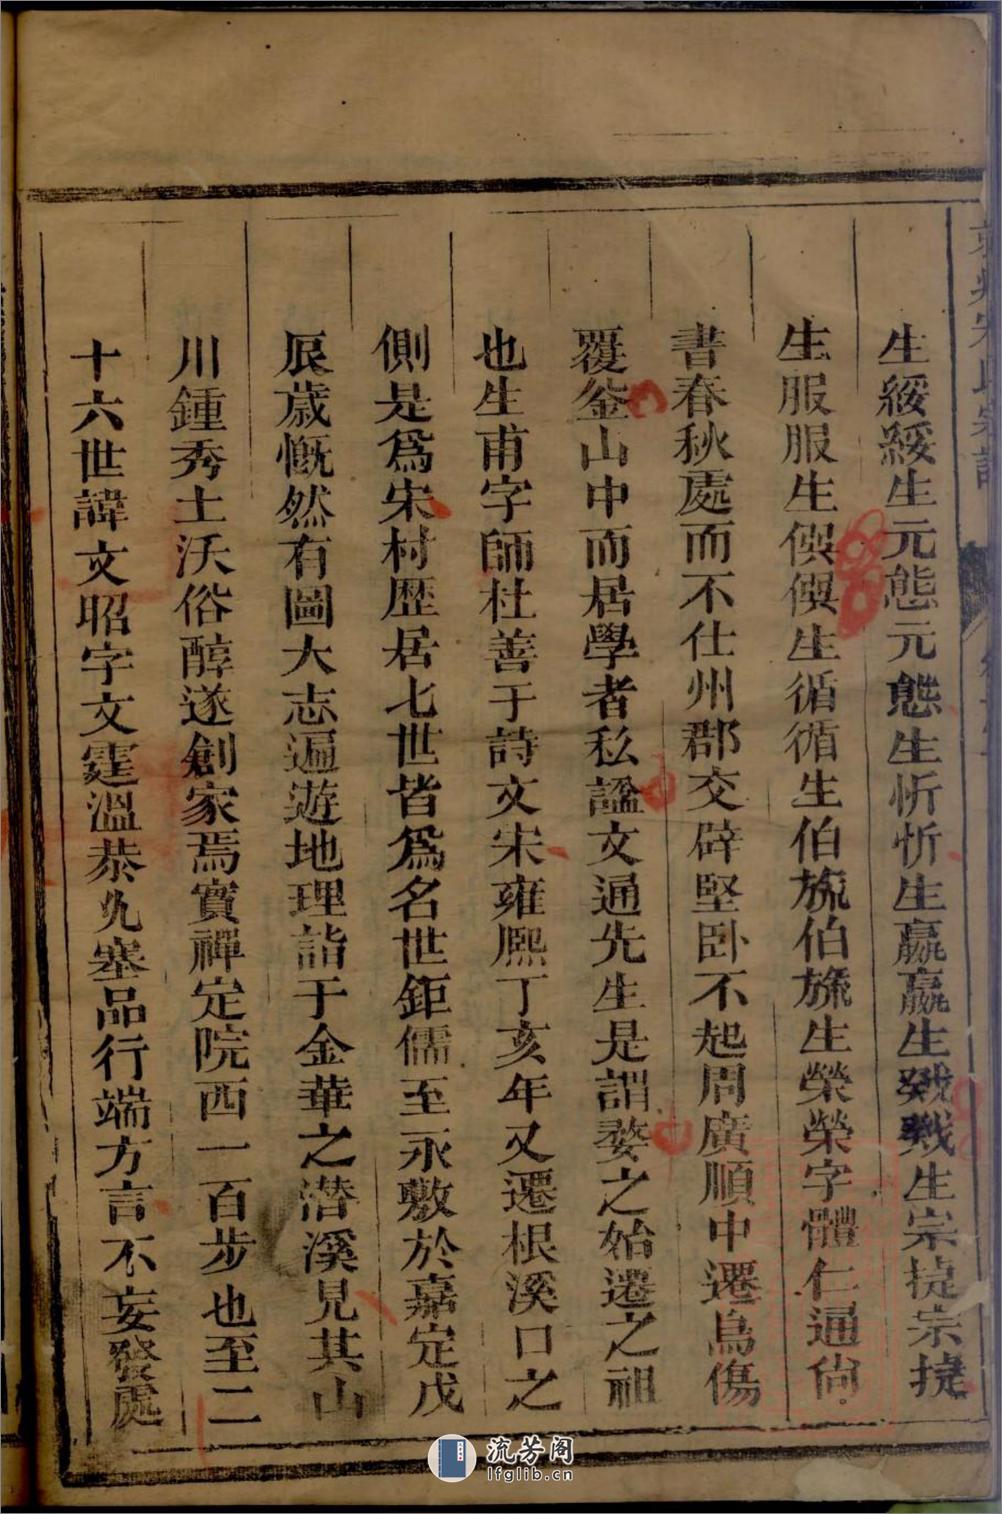 生綏綏生元態元態生忻忻生嬴嬴生戣戣生宗㨗宗㨗
生服服生僎僎生循循生伯旒伯旒生榮榮字體仁通尙
書春秋處而不仕州郡交辟堅卧不起周廣順中遷烏傷
覆釜山中而居學者私謚文通先生是謂婺之始遷之祖
也生甫字師杜善于詩文宋雍熙丁亥年又遷根溪口之
側是爲宋村歷居七世皆爲名世鉅儒至永敷於嘉定戊
辰歲慨然有圖大志遍遊地理詣于金華之潜溪見其山
川鍾秀土沃俗醇遂創家焉實禪定院西一百步也至二
十六世諱文昭字文霆溫恭允塞品行端方言不妄發處
流芳阁
lfglib.cn